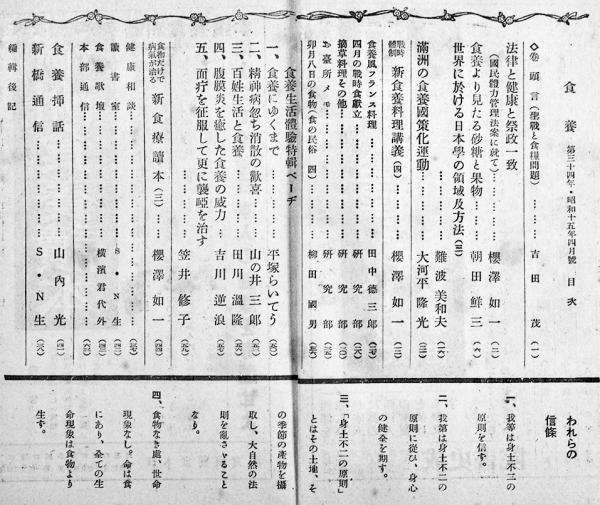 食養 第三十四年・昭和十五年四月號 目次
◇卷頭言(聖戰と食糧問題)………吉田茂(一)
法律と健康と祭政一致
(國民體力管理法案に就て)………櫻澤如一(二)
食養より見たる砂糖と果物………朝田鮮三(六)
世界に於ける日本學の領域及方法(三)
………難波美和夫(一六)
滿洲の食養國策化運動………大河平隆光(二〇)
戰時體制 新食養料理講義(四)………櫻澤如一(二二)
食養風フランス料理………田中德三郎
四月の戰時食獻立………研究部
摘草料理その他………研究部
お臺所メモ………研究部
卯月八日の食物(食の民俗 四)………柳田國男
食養生活體驗特輯ページ
一、食養にゆくまで………平塚らいてう
二、精神病忽ち消散の歡喜………山の井三郎
三、百姓生活と食養………田川溫隆
四、腹膜炎を癒した食養の威力………吉川逆浪
五、面疔を征服して更に襲啞を治す
………笠井修子
食物だけで病氣が治る 新食療讀本(三)………櫻澤如一
健康相談………
讀書室………S・N生
食養歌壇………橫濱君代外
本部通信………
食養揷話………山內光
新橋通信………S・N生
編輯後記
われらの信條
一、我等は身土不二の
原則を信ず。
二、我等は身土不二の
原則に從ひ、身心
の健全を期す。
三、「身土不二の原則」
とはその土地、そ
の季節の產物を攝
取し、大自然の法
則を亂さゞること
なり。
四、食物なき處、世命
現象なし。命は食
にあり、全ての生
命現象は食物より
生ず。